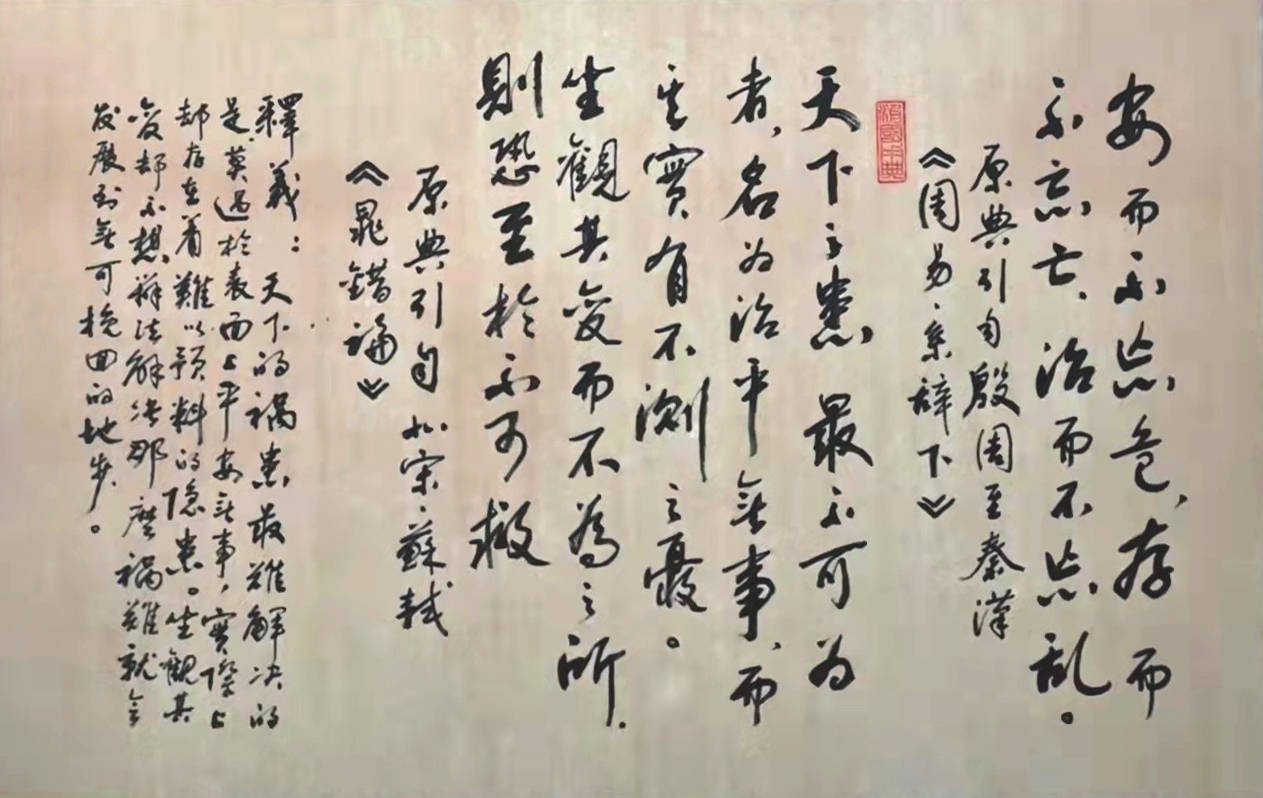 安而不忘危，存而
不忘亡，治而不忘乱。
原典引自殷周至秦漢
《周易·系辞下》
天下之患，最不可为
者，名为治平無事，而
其實有不測之憂。
坐觀其变而不為之所，
則恐至於不可救
原典引自北宋·蘇軾
《晁錯論》
釋義：天下的禍患，最难解决的
是，莫過於表面上平安無事，實際上
却存在着難以預料的隐患。坐觀其
变却不想辦法解决，那麽禍難就会
发展到無可挽回的地步。